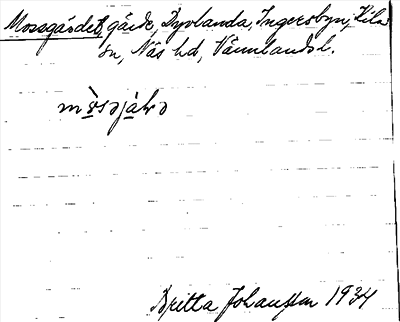 Mossgärdet, gärde, Dyvlanda, Ingersbyn, Kila
sn, Näs hd, Värmlands l.
Britta Johansson 1934